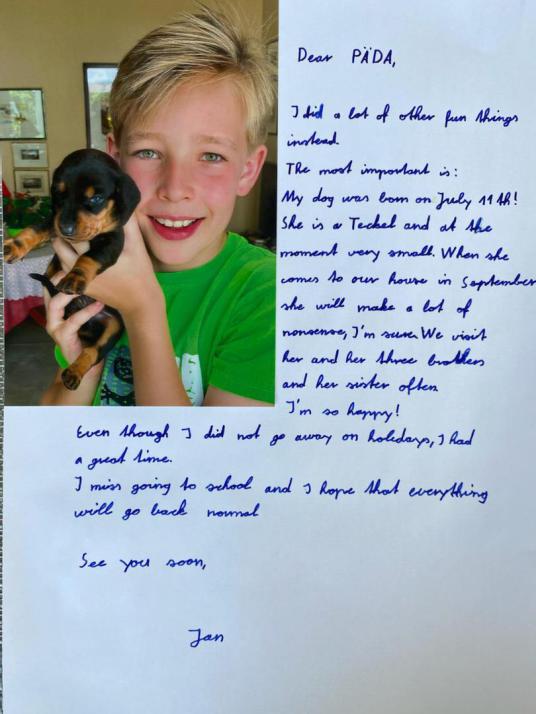 Dear PÄDA,
I did a lot of other fun things
instead.
The most important is:
My dog was born on July 11th!
She is a Teckel and at the
moment very small. When she
comes to our house in September
she will make a lot of
nonsense, I'm sure. We visit
her and her three brothers
and her sister often
I'm so happy!
Even though I did not go away on holidays, I had
a great time.
I miss going to school and I hope that everything
will go back normal
See you soon,
Jan